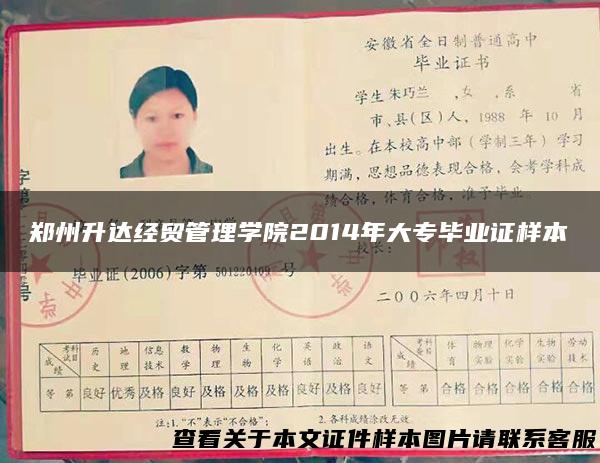 安徽省全日制普通高中
毕业证书
学生朱巧兰 ,女 ,系 省
市、县(区)人, 1988 年 10 月
出生。在本校高中部(学制三年)学习
期满,思想品德表现合格,会考学科成
绩合格,体育合格,准予毕业。
郑州升达经贸管理学院2014年大专毕业证样本
毕业证(2006)字第 501220409 号
二00六年四月十日
考试科目 历史 地理 信息技术 数学 物理 生物 化学 英语 政治 语文
成绩等第 良好 优秀 及格 良好 及格 及格 及格 良好 及格 良好
考查科目 体育 物理实验 化学实验 生物实验 劳动技术
成绩等第 合格 合格 合格 合格 合格
注:1."不"表示"不合格"; 2.各科成绩涂改无效
查看关于本文证件样本图片请联系客服